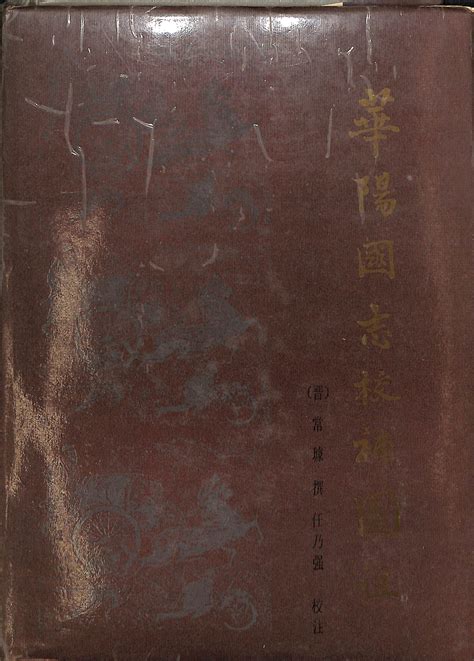 華陽國志校補圖注
(晋)常璩撰 任乃强 校注